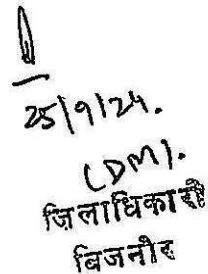 25/9/24.
(DM).
जिलाधिकारी
बिजनौर